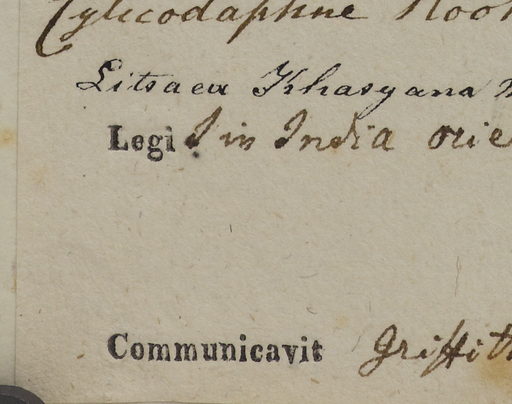 Cylicodaphne Hook
Litsaea Khasyana
Legi in India orie
Communicavit Griffith